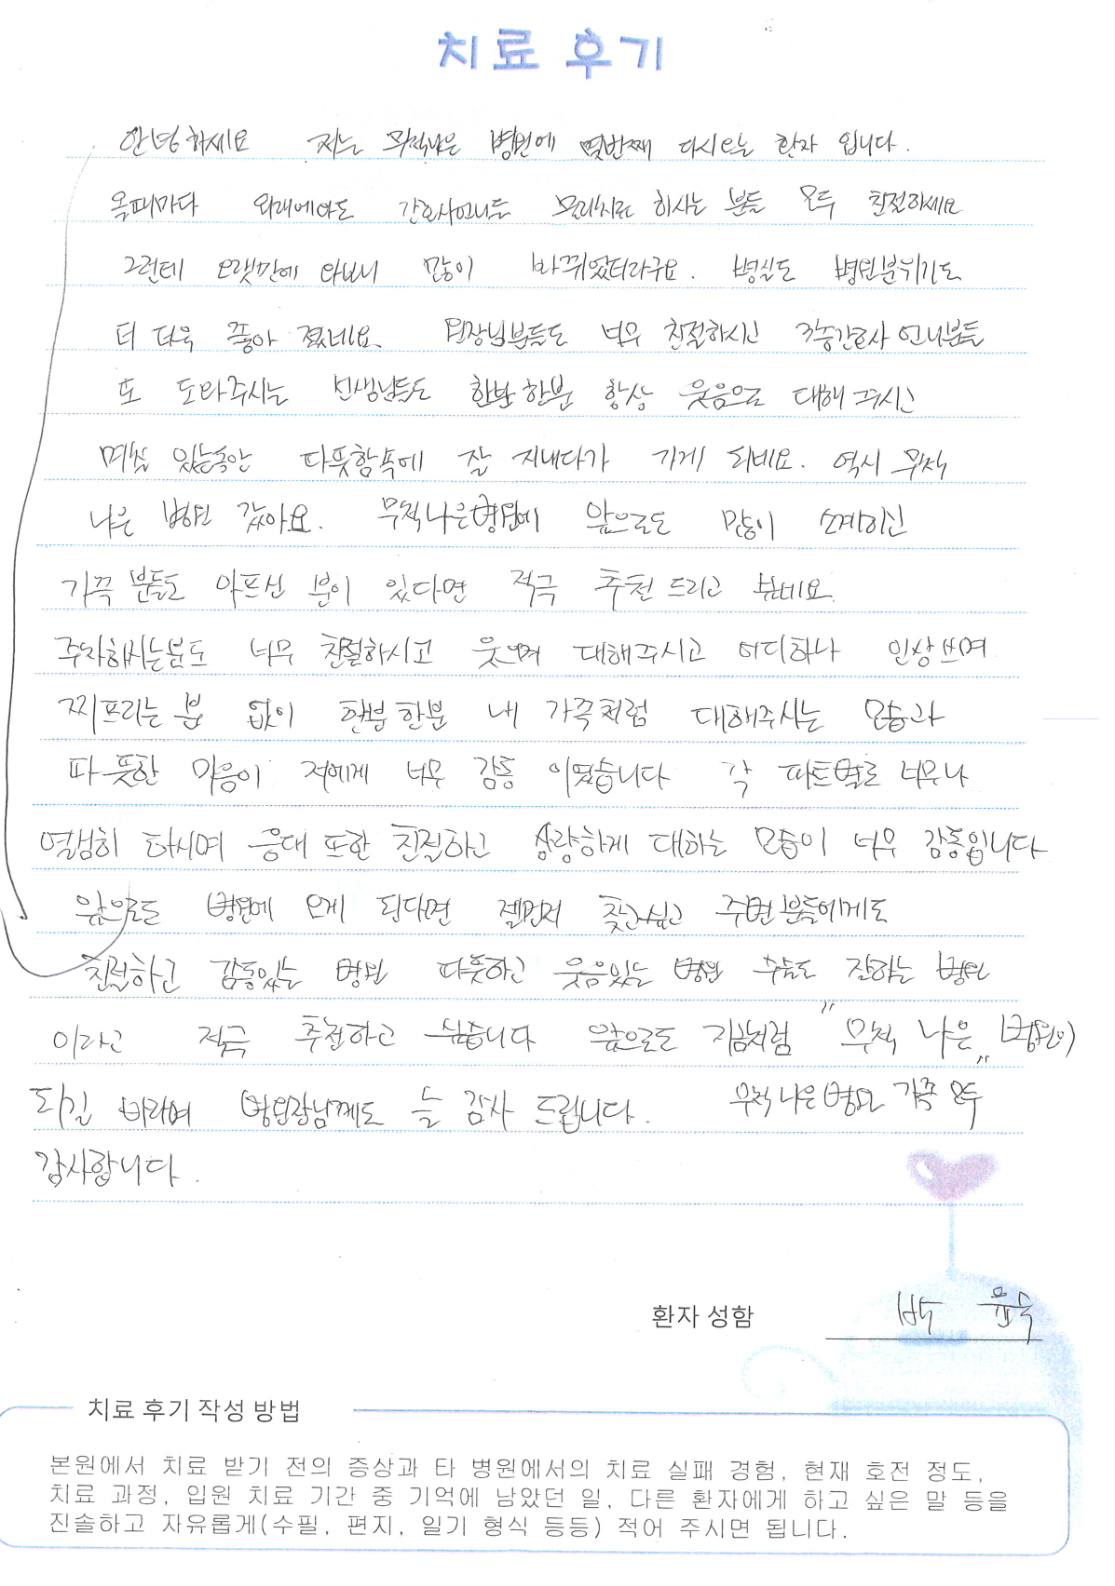 치료 후기
안녕하세요 저는 무척나은 병원에 몇번째 다시오는 환자 입니다.
올때마다 외래에서도 간호사언니들 물리치료 하시는 분들 모두 친절하세요
그런데 오랫만에 와보니 많이 바뀌었더라구요. 병실도 병원분위기도
더 더욱 좋아 졌네요. 원장님분들도 너무 친절하시고 3층간호사 언니분들
또 도와주시는 선생님들도 한분 한분 항상 웃음으로 대해 주시고
며칠 있는동안 따뜻함속에 잘 지내다가 가게 되네요. 역시 무척
나은 병원 같아요. 무척나은병원에 앞으로도 많이 소개하고
가족 분들도 아프신 분이 있다면 적극 추천 드리고 싶네요.
주차하시는분도 너무 친절하시고 웃으며 대해주시고 어디하나 인상쓰며
찌프리는 분 없이 한분 한분 내 가족처럼 대해주시는 모습과
따뜻한 마음이 저에게 너무 감동 이였습니다 각 파트별로 너무나
열심히 하시며 응대 또한 친절하고 상냥하게 대하는 모습이 너무 감동입니다
앞으로도 병원에 오게 된다면 젤먼저 찾고싶고 주변 분들에게도
친절하고 감동있는 병원 따뜻하고 웃음있는 병원 수술도 잘하는 병원
이라고 적극 추천하고 싶습니다 앞으로도 지금처럼 "무척 나은" 병원이
되길 바라며 병원장님께도 늘 감사 드립니다. 무척나은병원 가족 모두
감사합니다.
환자 성함 박 윤숙
치료 후기 작성 방법
본원에서 치료 받기 전의 증상과 타 병원에서의 치료 실패 경험, 현재 호전 정도,
치료 과정, 입원 치료 기간 중 기억에 남았던 일, 다른 환자에게 하고 싶은 말 등을
진솔하고 자유롭게(수필, 편지, 일기 형식 등등) 적어 주시면 됩니다.